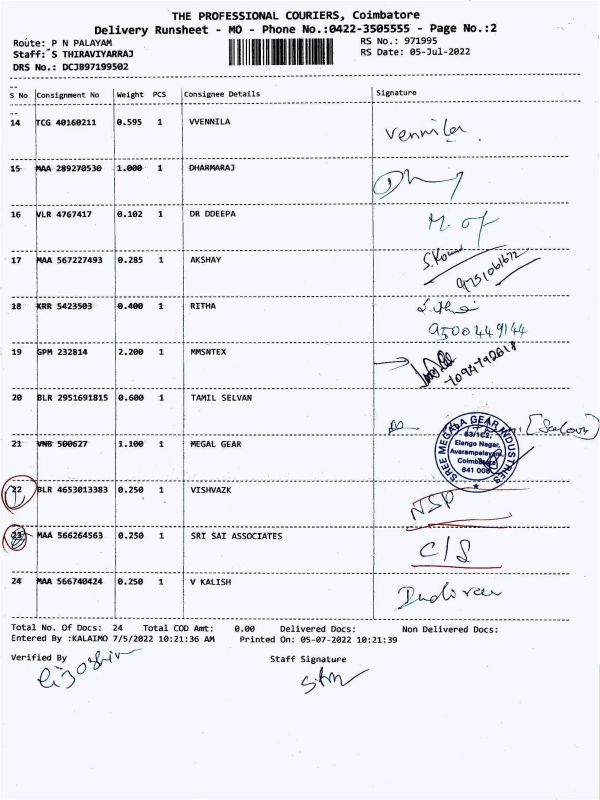 THE PROFESSIONAL COURIERS, Coimbatore
Delivery Runsheet - MO - Phone No.:0422-3505555 - Page No.:2
Route: P N PALAYAM RS No.: 971995
Staff: S THIRAVIYARRAJ RS Date: 05-Jul-2022
DRS No.: DCJB97199502
S No Consignment No Weight PCS Consignee Details Signature
14 TCG 40160211 0.595 1 VVENNILA Vennila
15 MAA 289270530 1.000 1 DHARMARAJ
16 VLR 4767417 0.102 1 DR DDEEPA
17 MAA 567227493 0.285 1 AKSHAY
9751061672
18 KRR 5423503 0.400 1 RITHA
9500449144
19 GPM 232814 2.200 1 MMSNTEX
20 BLR 2951691815 0.600 1 TAMIL SELVAN
21 VNB 500627 1.100 1 MEGAL GEAR
SREE MEGALA GEAR INDUSTRIES
Elango Nagar,
Avarampalayam,
Coimbatore
641 006
22 BLR 4653013383 0.250 1 VISHVAZK NSP
23 MAA 566264563 0.250 1 SRI SAI ASSOCIATES C/S
24 MAA 566740424 0.250 1 V KALISH
Total No. Of Docs: 24 Total COD Amt: 0.00 Delivered Docs: Non Delivered Docs:
Entered By :KALAIMO 7/5/2022 10:21:36 AM Printed On: 05-07-2022 10:21:39
Verified By Staff Signature